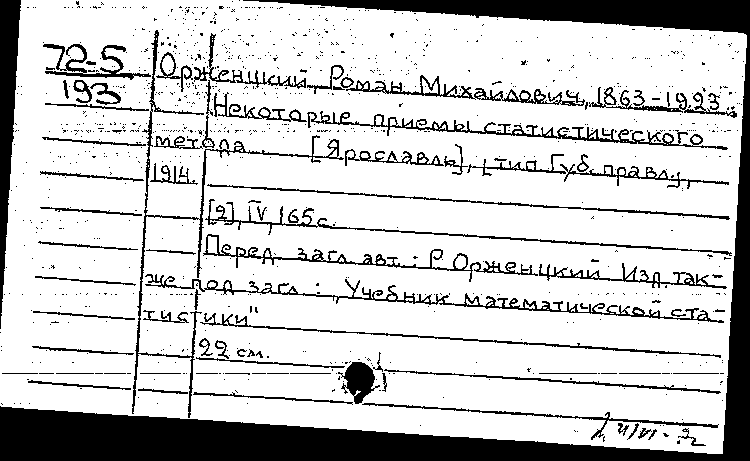 72-5
193
Орженцкий, Роман Михайлович, 1863-1923.
Некоторые приемы статистического
метода. [Ярославль], тип. Губ. правл.,
1914.
[2], IV, 165 с.
Перед загл. авт.: Р. Орженцкий. Изд. так-
же под загл.: "Учебник математической ста-
тистики"
22 см.